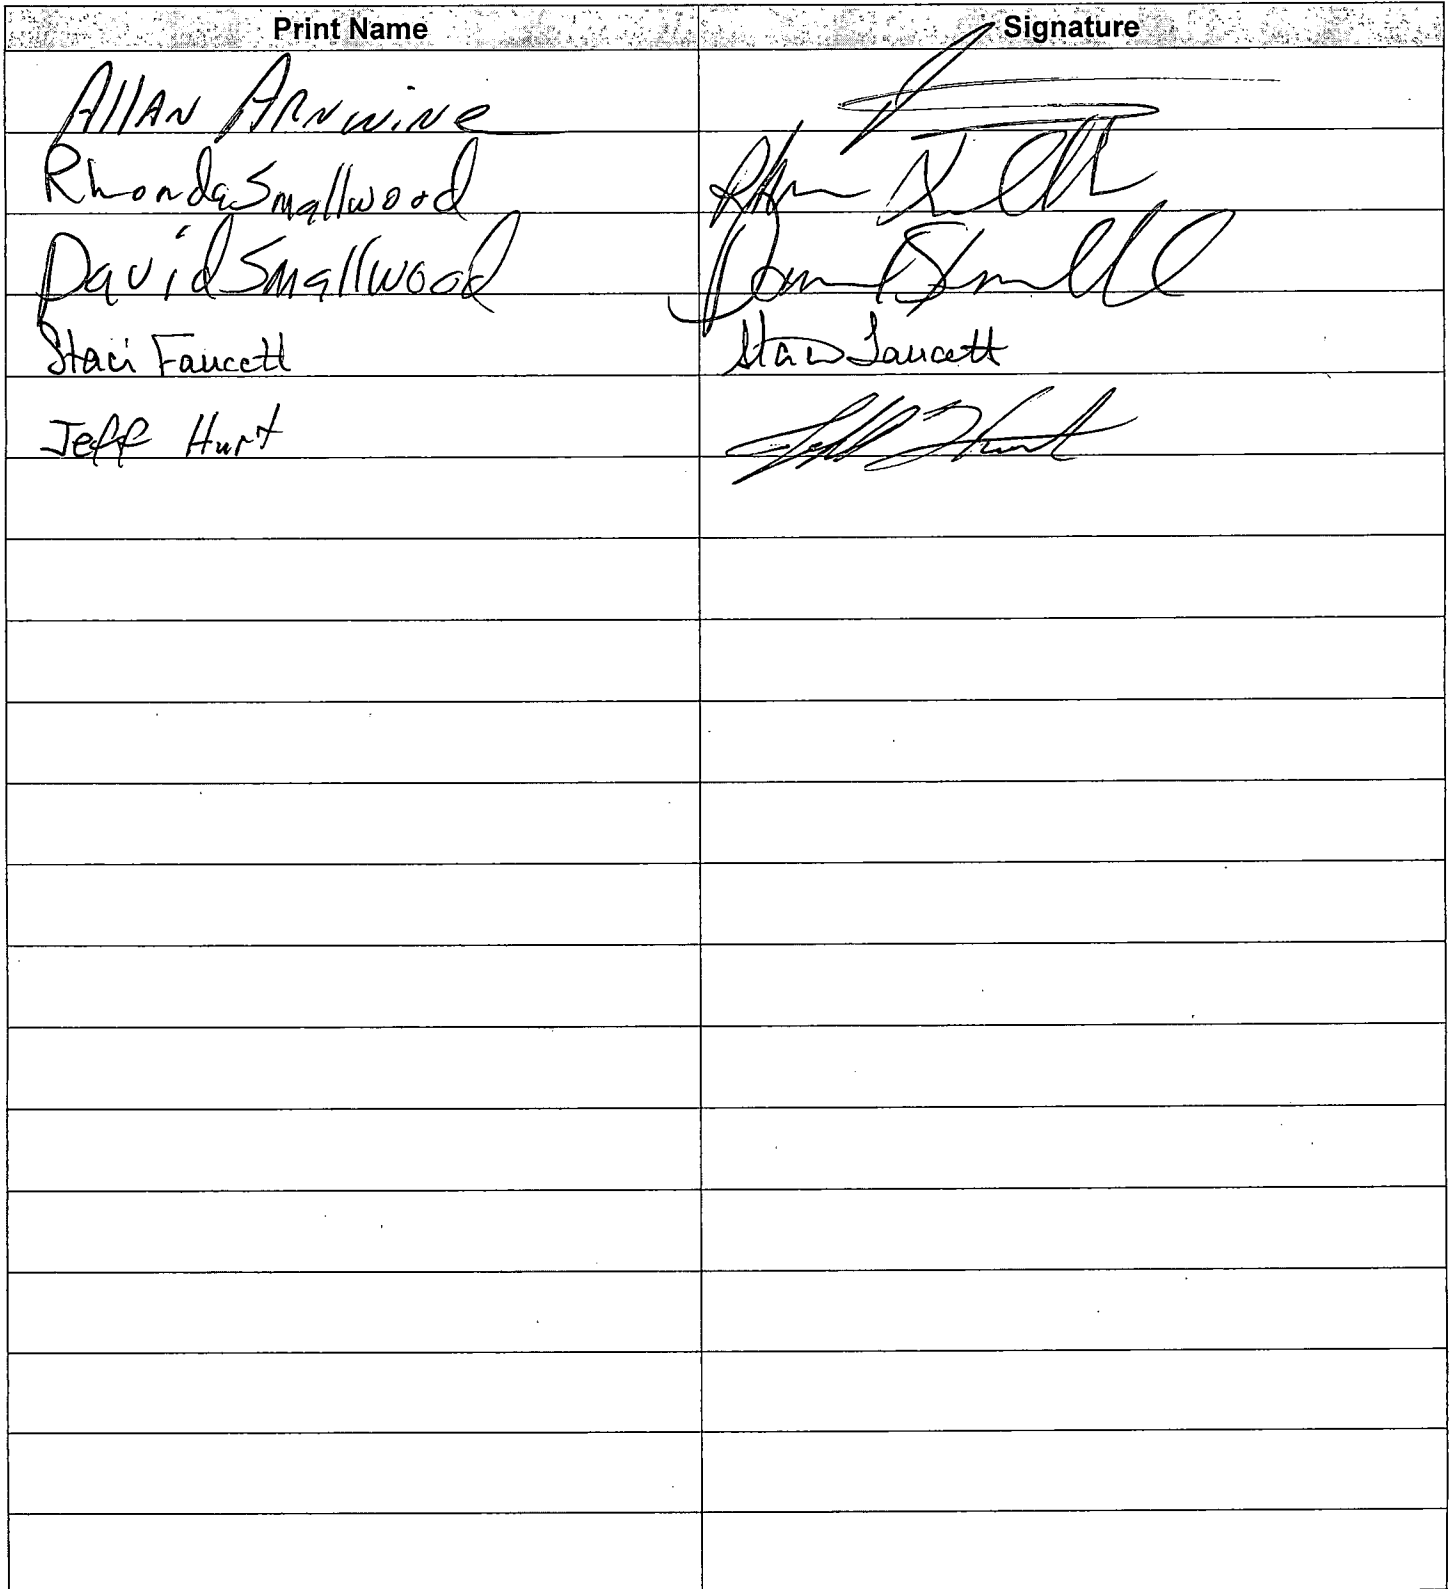 Print Name Signature
Allan Arnwine
Rhonda Smallwood
David Smallwood
Staci Faucett Staci Faucett
Jeff Hurt Jeff Hurt